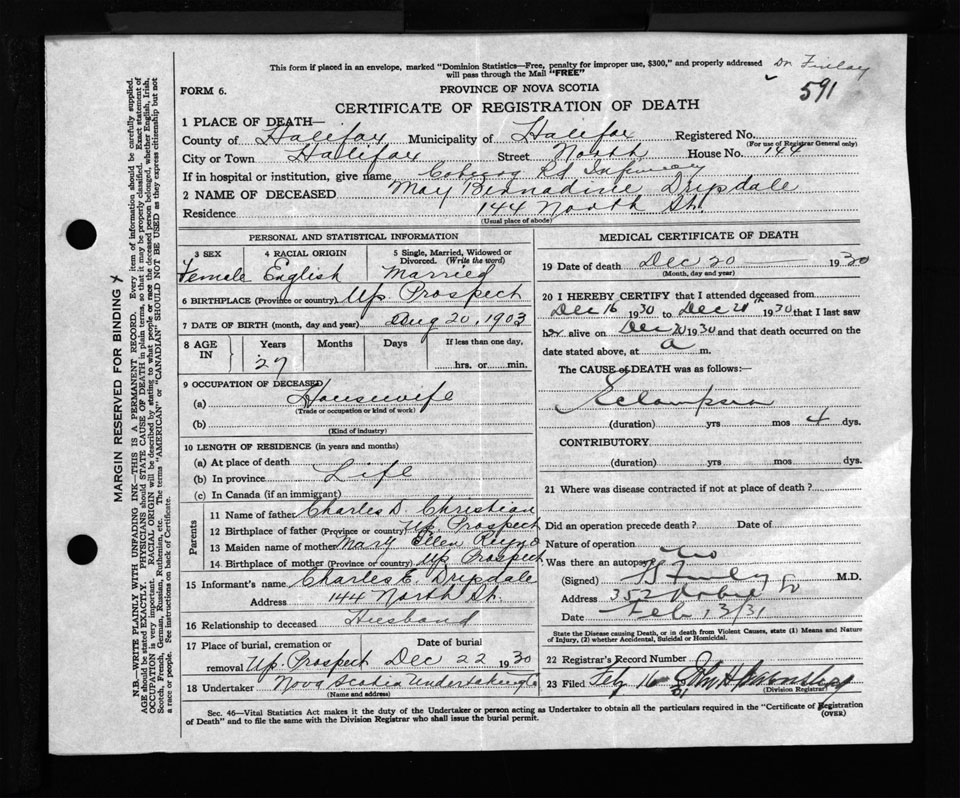 This form if placed in an envelope, marked "Dominion Statistics—Free, penalty for improper use, $300," and properly addressed
will pass through the Mail "FREE"
Dr Finlay
591
FORM 6.
PROVINCE OF NOVA SCOTIA
CERTIFICATE OF REGISTRATION OF DEATH
1 PLACE OF DEATH—
County of Halifax Municipality of Halifax Registered No.
(For use of Registrar General only)
City or Town Halifax Street North House No. 144
If in hospital or institution, give name Coburg Rd Infirmary
2 NAME OF DECEASED May Bernadine Drysdale
Residence 144 North St.
(Usual place of abode)
PERSONAL AND STATISTICAL INFORMATION
3 SEX 4 RACIAL ORIGIN 5 Single, Married, Widowed or Divorced. (Write the word)
Female English Married
6 BIRTHPLACE (Province or country) Up. Prospect
7 DATE OF BIRTH (month, day and year) Aug 20, 1903
8 AGE IN Years Months Days If less than one day,
27 hrs. or min.
9 OCCUPATION OF DECEASED
(a) Housewife
(Trade or occupation or kind of work)
(b)
(Kind of industry)
10 LENGTH OF RESIDENCE (in years and months)
(a) At place of death
(b) In province Life
(c) In Canada (if an immigrant)
Parents
11 Name of father Charles D. Christian
12 Birthplace of father (Province or country) Up. Prospect
13 Maiden name of mother Mary Ellen
14 Birthplace of mother (Province or country) Up Prospect
15 Informant's name Charles E. Drysdale
Address 144 North St.
16 Relationship to deceased Husband
17 Place of burial, cremation or removal Date of burial
Up. Prospect Dec 22 1930
18 Undertaker Nova Scotia Undertaking Co
(Name and address)
MEDICAL CERTIFICATE OF DEATH
19 Date of death Dec 20 1930
(Month, day and year)
20 I HEREBY CERTIFY that I attended deceased from
Dec 16 1930 to Dec 20 1930 that I last saw
her alive on Dec 20 1930 and that death occurred on the
date stated above, at a m.
The CAUSE of DEATH was as follows:—
Eclampsia
(duration) yrs mos 4 dys.
CONTRIBUTORY
(duration) yrs mos dys.
21 Where was disease contracted if not at place of death?
Did an operation precede death? Date of
Nature of operation
Was there an autopsy? no
(Signed) M.D.
Address 352 Robie St
Date Feb 13/31
State the Disease causing Death, or in death from Violent Causes, state (1) Means and Nature of Injury, (2) whether Accidental, Suicidal or Homicidal.
22 Registrar's Record Number
23 Filed Feb 16 31 John H
(Division Registrar)
Sec. 46—Vital Statistics Act makes it the duty of the Undertaker or person acting as Undertaker to obtain all the particulars required in the "Certificate of Registration
of Death" and to file the same with the Division Registrar who shall issue the burial permit.
(OVER)
MARGIN RESERVED FOR BINDING
N.B.—WRITE PLAINLY WITH UNFADING INK—THIS IS A PERMANENT RECORD. Every item of information should be carefully supplied.
AGE should be stated EXACTLY. PHYSICIANS should STATE CAUSE OF DEATH in plain terms, so that it may be properly classified. Exact statement of
OCCUPATION is very important. RACIAL ORIGIN will be described by stating to what people or race the deceased person belonged, whether English, Irish,
Scotch, French, German, Russian, Ruthenian, etc. The terms "AMERICAN" or "CANADIAN" SHOULD NOT BE USED as they express citizenship but not
a race or people. See instructions on back of Certificate.